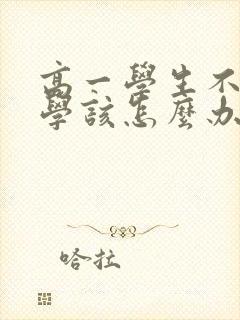 高一學生不
學該怎麼办
哈拉